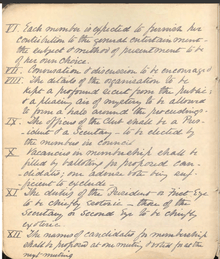 VI. Each member is expected to furnish her
contribution to the general entertainment –
the subject & method of presentment to be
of her own choice.
VII. Conversation & discussion to be encouraged
VIII. The details of the organisation to be
kept a profound secret from the public;
& a pleasing air of mystery to be allowed
to form a halo around the proceedings.
IX. The officers of the Club shall be a Pres-
ident & a Secretary – to be elected by
the members in council
X. Vacancies in membership shall be
filled by ballot for proposed can-
didates; one adverse vote being suf-
ficient to exclude.
XI The duties of the President or First Eye
to be chiefly esoteric – those of the
Secretary or Second Eye to be chiefly
exoteric.
XII The names of candidates for membership
shall be proposed at one meeting, & voted for at the
next meeting